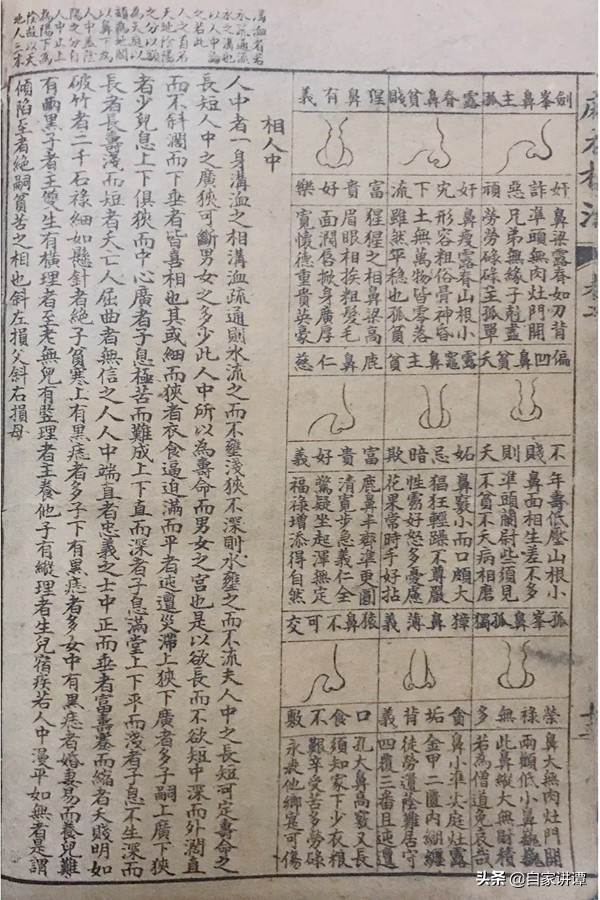 麻衣相法
劍峯鼻主孤
奸詐惡頑
鼻梁露脊如刀背
準頭無肉灶門開
兄弟無緣子尅盡
勞勞碌碌至孤單
露脊鼻貧賤
奸宄下流
鼻瘦露脊山根小
形容粗俗骨神昏
土無萬物皆零落
雖然平穩也孤
猩鼻有義
富貴好樂
猩猩之相鼻梁高
眉眼相挨粗髮毛
面濶唇掀身廣厚
寬懷德重貴英豪
偏凹鼻貧夭
不賤則夭
年壽低壓山根小
鼻面相生差不多
準頭蘭尉些須見
不貧不夭病相磨
露竈鼻主貧
妬忌暗欺
鼻竅小而口頗大
猖狂輕躁不尊嚴
性高好怒多憂慮
花果當時手好拈
鹿鼻仁慈
富貴好義
鹿鼻丰齊準更圓
情寬步急義仁全
驚疑坐起渾無定
福祿增添得自然
孤峯鼻孤獨
榮祿無多
鼻大無肉灶門開
兩顴低小鼻巍巍
此鼻縱大無財積
若為僧道免哀哉
獐鼻薄義
貪垢背義
鼻小準尖庭灶露
金甲二匱內綳纏
徒勞遺蔭難居守
四覆三番且迍邅
猿鼻不可交
口食不敷
孔大鼻高竅又長
須知家下少衣粮
艱辛受苦多勞碌
永喪他鄉寔可傷
相人中
人中者一身溝洫之相溝洫疏通則水流之而不壅淺狹不深則水壅之而不流夫人中之長短可定壽命之
長短人中之廣狹可斷男女之多少此人中所以為壽命而男女之宮也是以欲長而不欲短中深而外濶直
而不斜濶而下垂者皆喜相也其或細而狹者衣食逼迫滿而平者迍邅災滯上狹下廣者多子嗣上廣下狹
者少兒息上下俱狹而中心廣者子息極苦而難成上下直而深者子息滿堂上下平而淺者子息不生深而
長者長壽淺而短者夭亡人屈曲者無信之人人中端直者忠義之士中正而垂者富壽蹇而縮者夭賤明如
破竹者二千石祿細如懸針者絕子貧寒上有黑痣者多子下有黑痣者多女中有黑痣者婚妻易而養兒難
有兩黑子者主雙生有橫理者至老無兒有豎理者主養他子有縱理者生兒宿疾若人中漫平如無者是謂
傾陷至者絕嗣貧苦之相也斜左損父斜右損母
溝洫者若
水疏通流
水之溝也
以人中論
之若此
人之首若
天地陰陽
之分以額
為天庭以
頦為地閣
以鼻下為
人中蓋陰
陽之分有
人中上為
陽下為
陰故以天
地人三才
头条 @自家讲谭